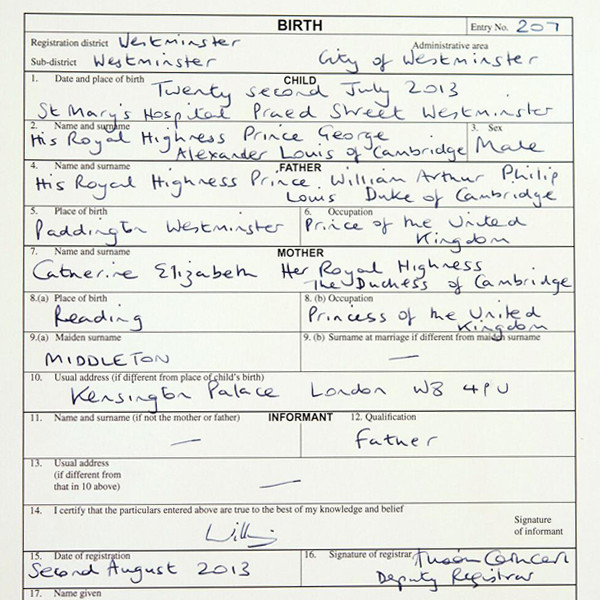 BIRTH
Entry No. 207
Registration district Westminster
Administrative area
Sub-district Westminster
City of Westminster
1. Date and place of birth
CHILD
Twenty second July 2013
St Mary's Hospital Praed Street Westminster
2. Name and surname
His Royal Highness Prince George
Alexander Louis of Cambridge
3. Sex
Male
4. Name and surname
FATHER
His Royal Highness Prince William Arthur Philip
Louis Duke of Cambridge
5. Place of birth
Paddington Westminster
6. Occupation
Prince of the United
Kingdom
7. Name and surname
MOTHER
Catherine Elizabeth Her Royal Highness
The Duchess of Cambridge
8.(a) Place of birth
Reading
8. (b) Occupation
Princess of the United
Kingdom
9.(a) Maiden surname
MIDDLETON
9. (b) Surname at marriage if different from maiden surname
—
10. Usual address (if different from place of child's birth)
Kensington Palace London W8 4PU
11. Name and surname (if not the mother or father)
INFORMANT
—
12. Qualification
Father
13. Usual address
(if different from
that in 10 above)
—
14. I certify that the particulars entered above are true to the best of my knowledge and belief
Signature
of informant
15. Date of registration
Second August 2013
16. Signature of registrar
Deputy Registrar
17. Name given